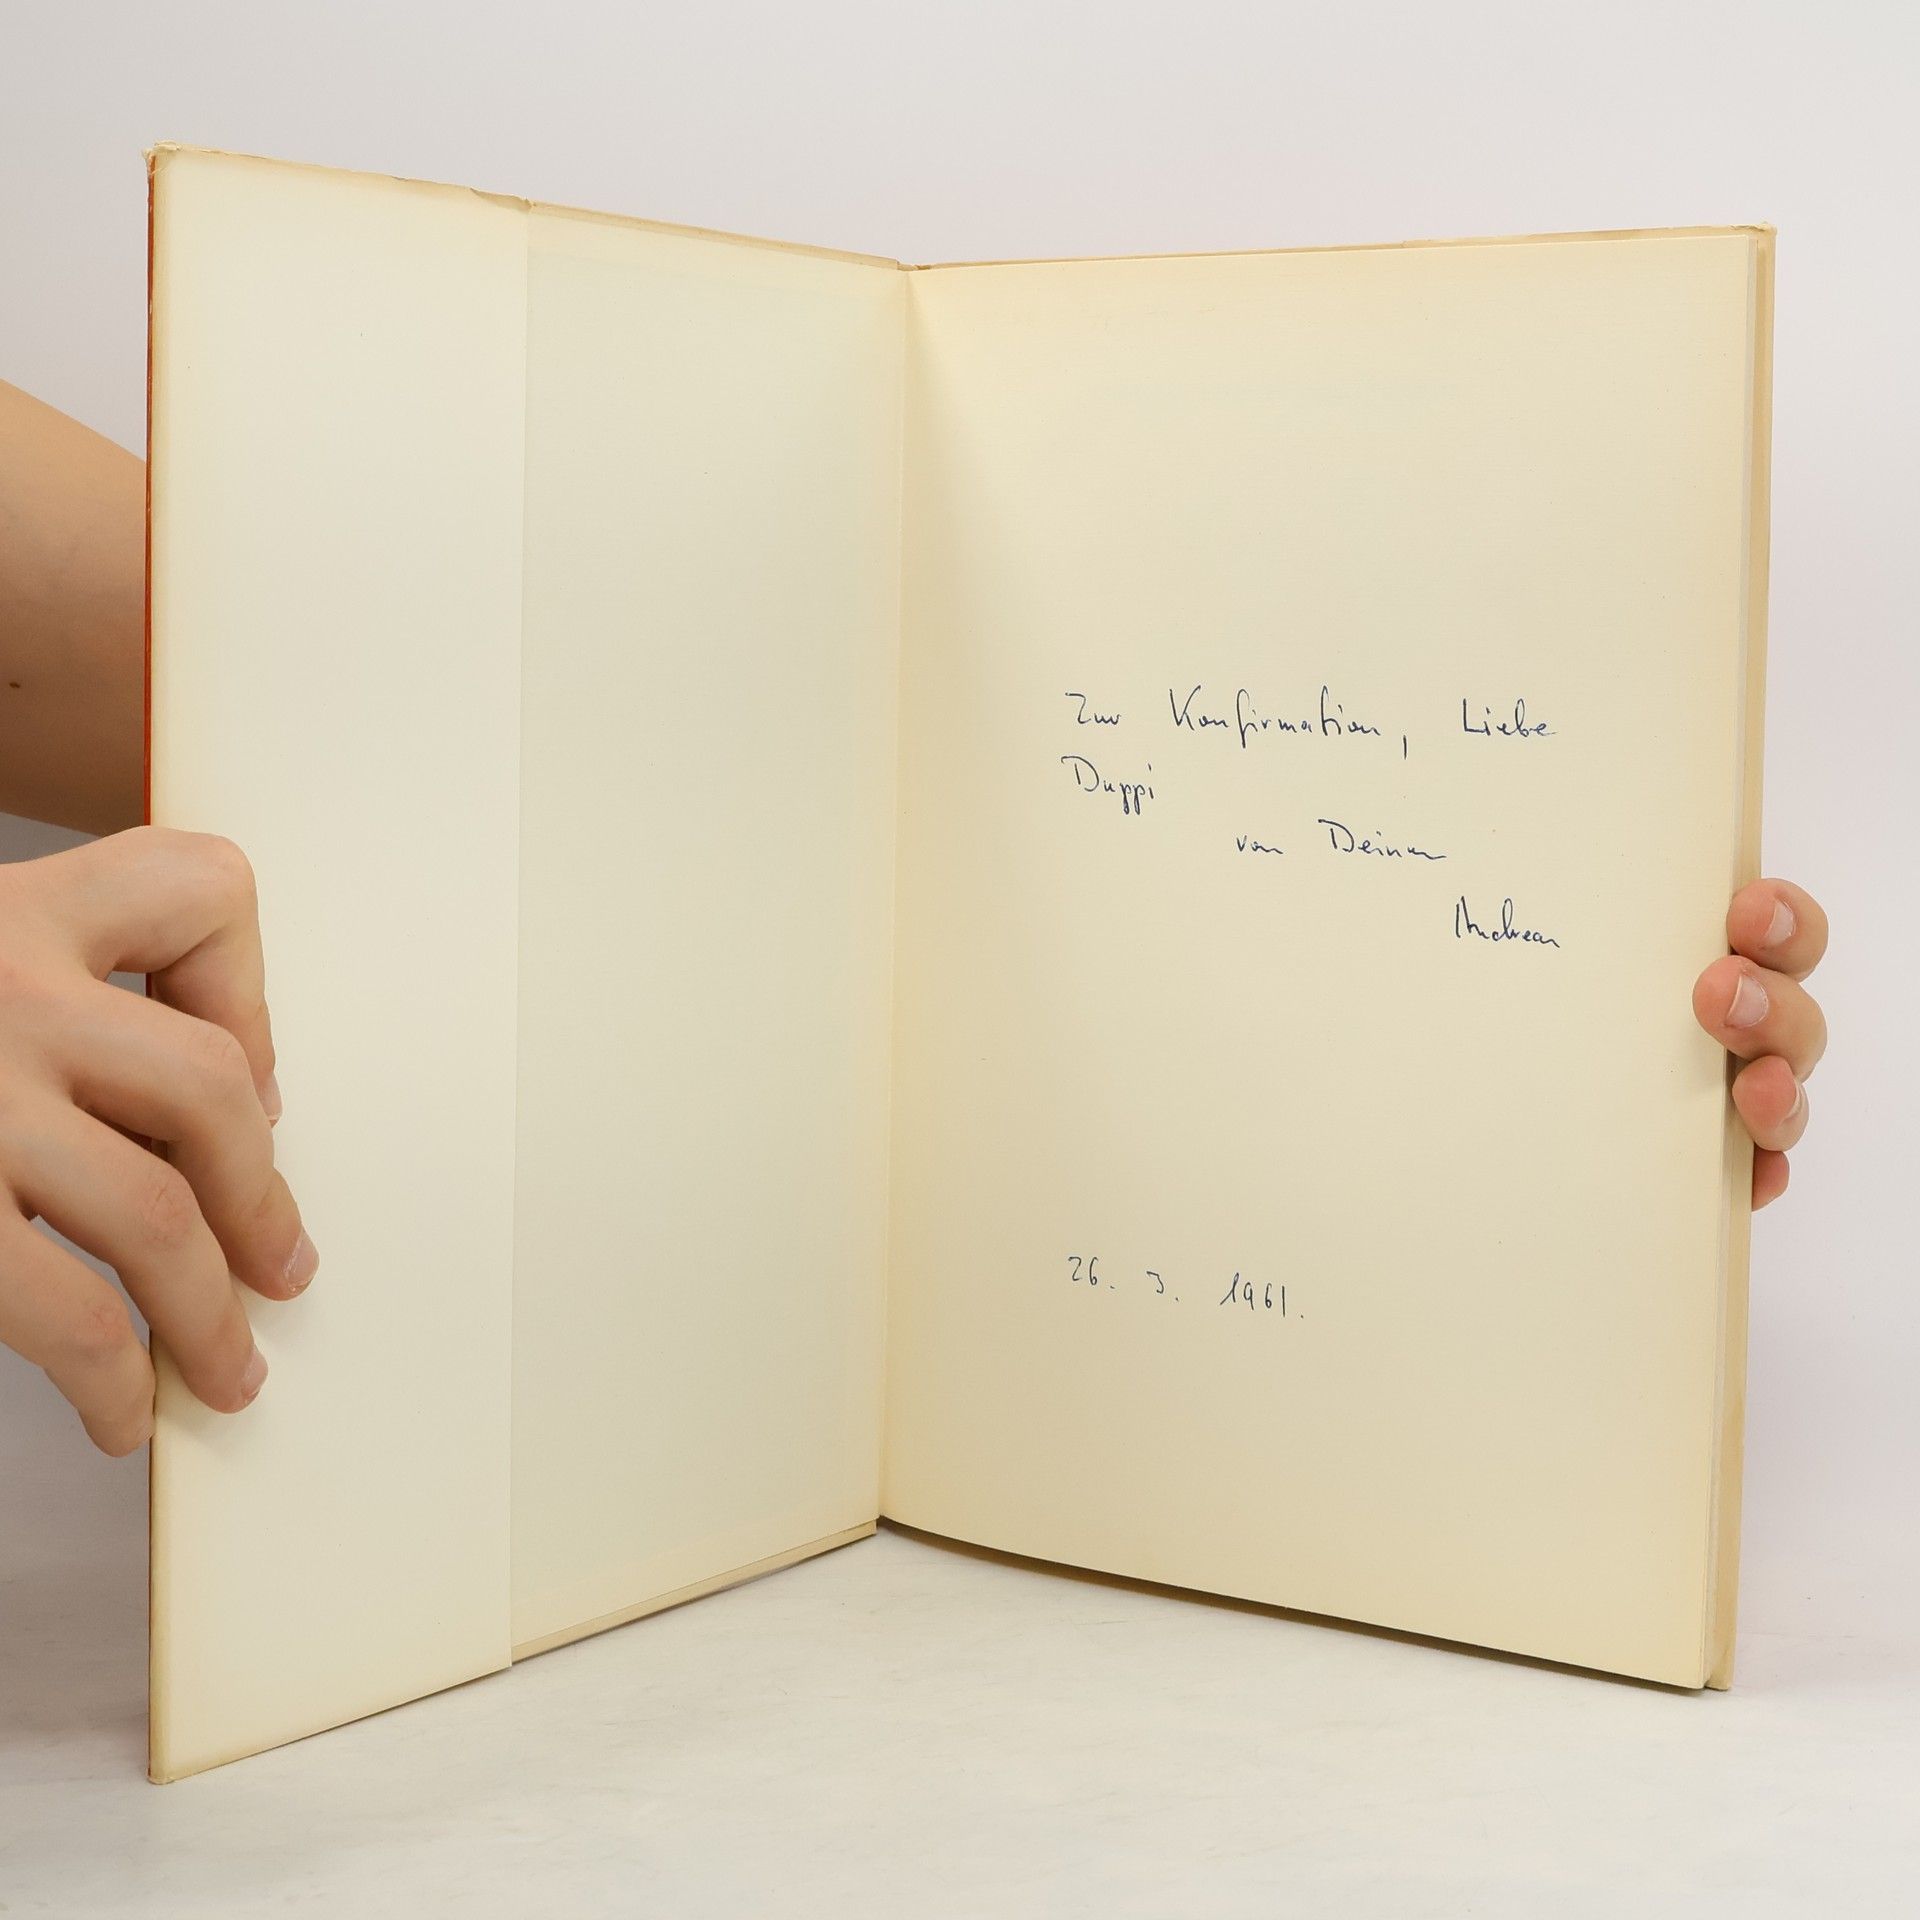 Zur Konfirmation, Liebe
Duppi
von Deinem
Andreas
26. 3. 1961.